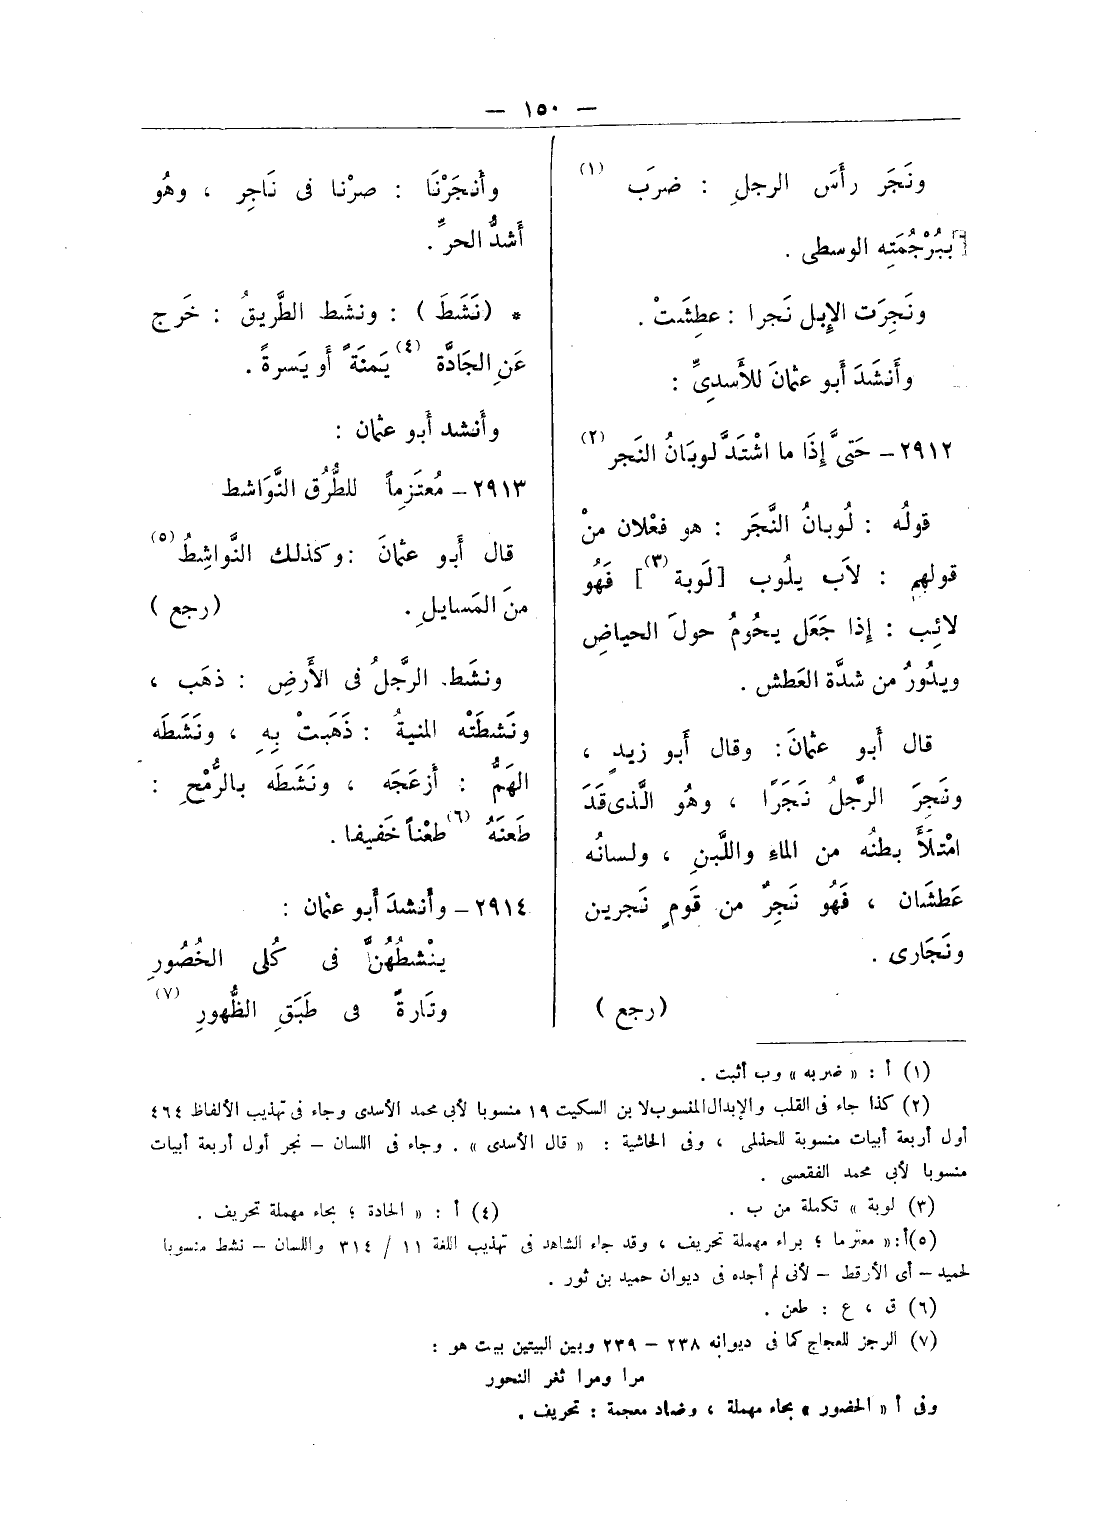 — ١٥٠ —
ونَجَر رأَسَ الرجلِ : ضرَب (١)
بِبُرْجُمَتِه الوسطى .
ونَجِرَت الإِبل نَجرا : عطِشَتْ .
وأَنشَدَ أَبو عثمانَ للأَسدِىِّ :
٢٩١٢ – حَتىَّ إِذَا ما اشْتَدَّ لوبَانُ النَجر (٢)
قولُه : لُوبانُ النَّجَر : هو فَعْلان منْ
قولهم : لاَب يلُوب [لَوبة (٣)] فَهُو
لائِب : إِذا جَعَل يحُومُ حولَ الحياضِ
ويدُورُ من شدَّة العَطش .
قال أَبو عثمانَ : وقال أَبو زيدٍ ،
ونَجِرَ الرَّجلُ نَجَرًا ، وهُو الَّذى قَدَ
امْتلأَ بطنُه من الماءِ واللَّبنِ ، ولسانُه
عَطشَان ، فَهُو نَجِرٌ من قَومٍ نَجرين
ونَجَارى .
(رجع )
وأَنجَرْنَا : صرْنا فى نَاجِر ، وهُو
أَشدُّ الحرِّ .
* (نَشَطَ ) : ونشَط الطَّريقُ : خَرج
عَنِ الجَادَّة (٤) يَمنَةً أَو يَسرةً .
وأَنشد أَبو عثمان :
٢٩١٣ – مُعتَزِماً للطُّرُق النَّوَاشط
قال أَبو عثمانَ : وكذلك النَّواشِطُ (٥)
منَ المَسايلِ . (رجع )
ونشَط الرَّجلُ فى الأَرضِ : ذهَب ،
ونَشطَتْه المنيةُ : ذَهَبتْ بِهِ ، ونَشَطَه
الهَمُّ : أَزعَجَه ، ونَشَطَه بالرُّمْحِ :
طَعنَهُ (٦) طعْناً خَفيفا .
٢٩١٤ – وأَنشدَ أَبو عثمان :
ينْشطُهُنَّ فى كُلى الخُصُورِ
وتَارةً فى طَبَقِ الظُّهورِ (٧)
(١) أ : « ضربه » وب أثبت .
(٢) كذا جاء فى القلب والإبدال المنسوب لابن السكيت ١٩ منسوبا لأبى محمد الأسدى وجاء فى تهذيب الألفاظ ٤٦٤
أول أربعة أبيات منسوبة للحذلمى ، وفى الحاشية : « قال الأسدى » . وجاء فى اللسان – نجر أول أربعة أبيات
منسوبا لأبى محمد الفقعسى .
(٣) لوبة » تكملة من ب . (٤) أ : « الحادة ؛ بحاء مهملة تحريف .
(٥) أ : « معترما ؛ براء مهملة تحريف ، وقد جاء الشاهد فى تهذيب اللغة ١١ / ٣١٤ واللسان – نشط منسوبا
لحميد – أى الأرقط – لأنى لم أجده فى ديوان حميد بن ثور .
(٦) ق ، ع : طعن .
(٧) الرجز للعجاج كما فى ديوانه ٢٣٨ – ٢٣٩ وبين البيتين بيت هو :
مرا ومرا ثغر النحور
وفى أ « الحضور » بحاء مهملة ، وضاد معجمة : تحريف .